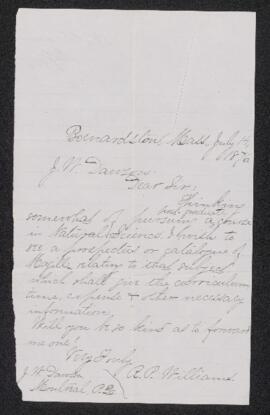 Bernardston, Mass, July 14,
187
J. W. Dawson.
Dear Sir;
Thinking
somewhat of pursuing a course
in Natural Science, I wish to
see a prospectus or catalogue of
McGill relating to that subject
which shall give the curriculum
time, expense & other necessary
information.
Will you be so kind as to forward
me one?
Very Truly,
R. P. Williams.
J. W. Dawson
Montreal, P.Q.